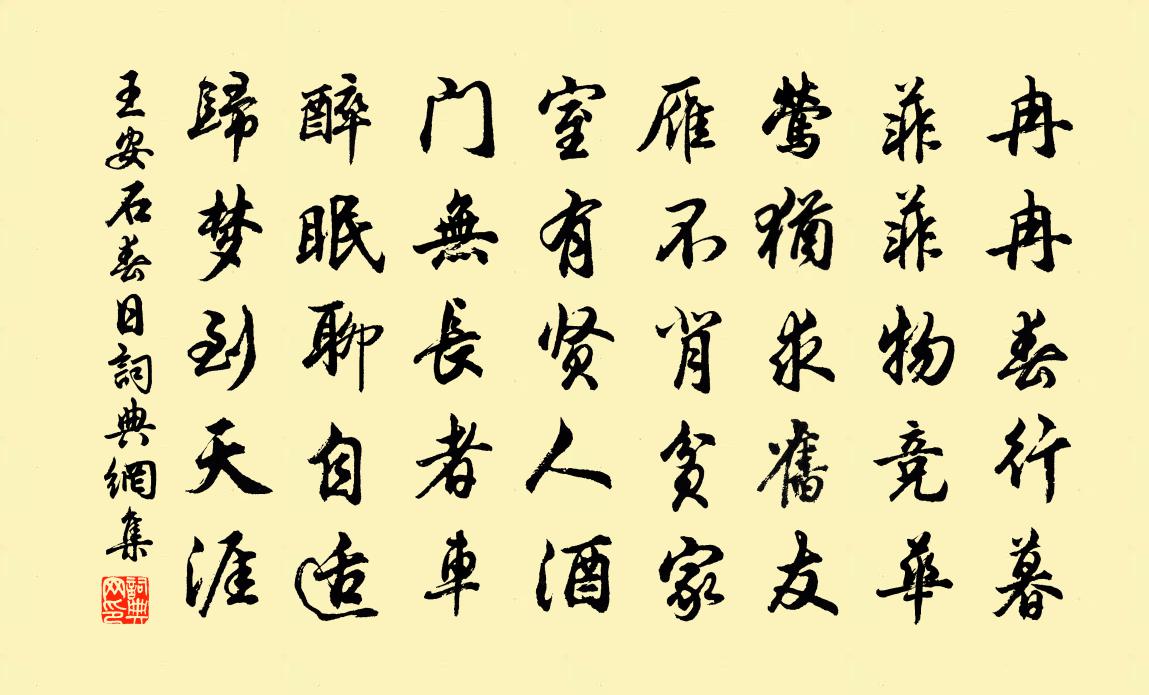 冉冉春行暮
菲菲物竞華
鶯猶求舊友
雁不肯貧家
室有贤人酒
门無長者車
醉眠聊自适
歸梦到天涯
王安石春日詞典網集
詞典网印